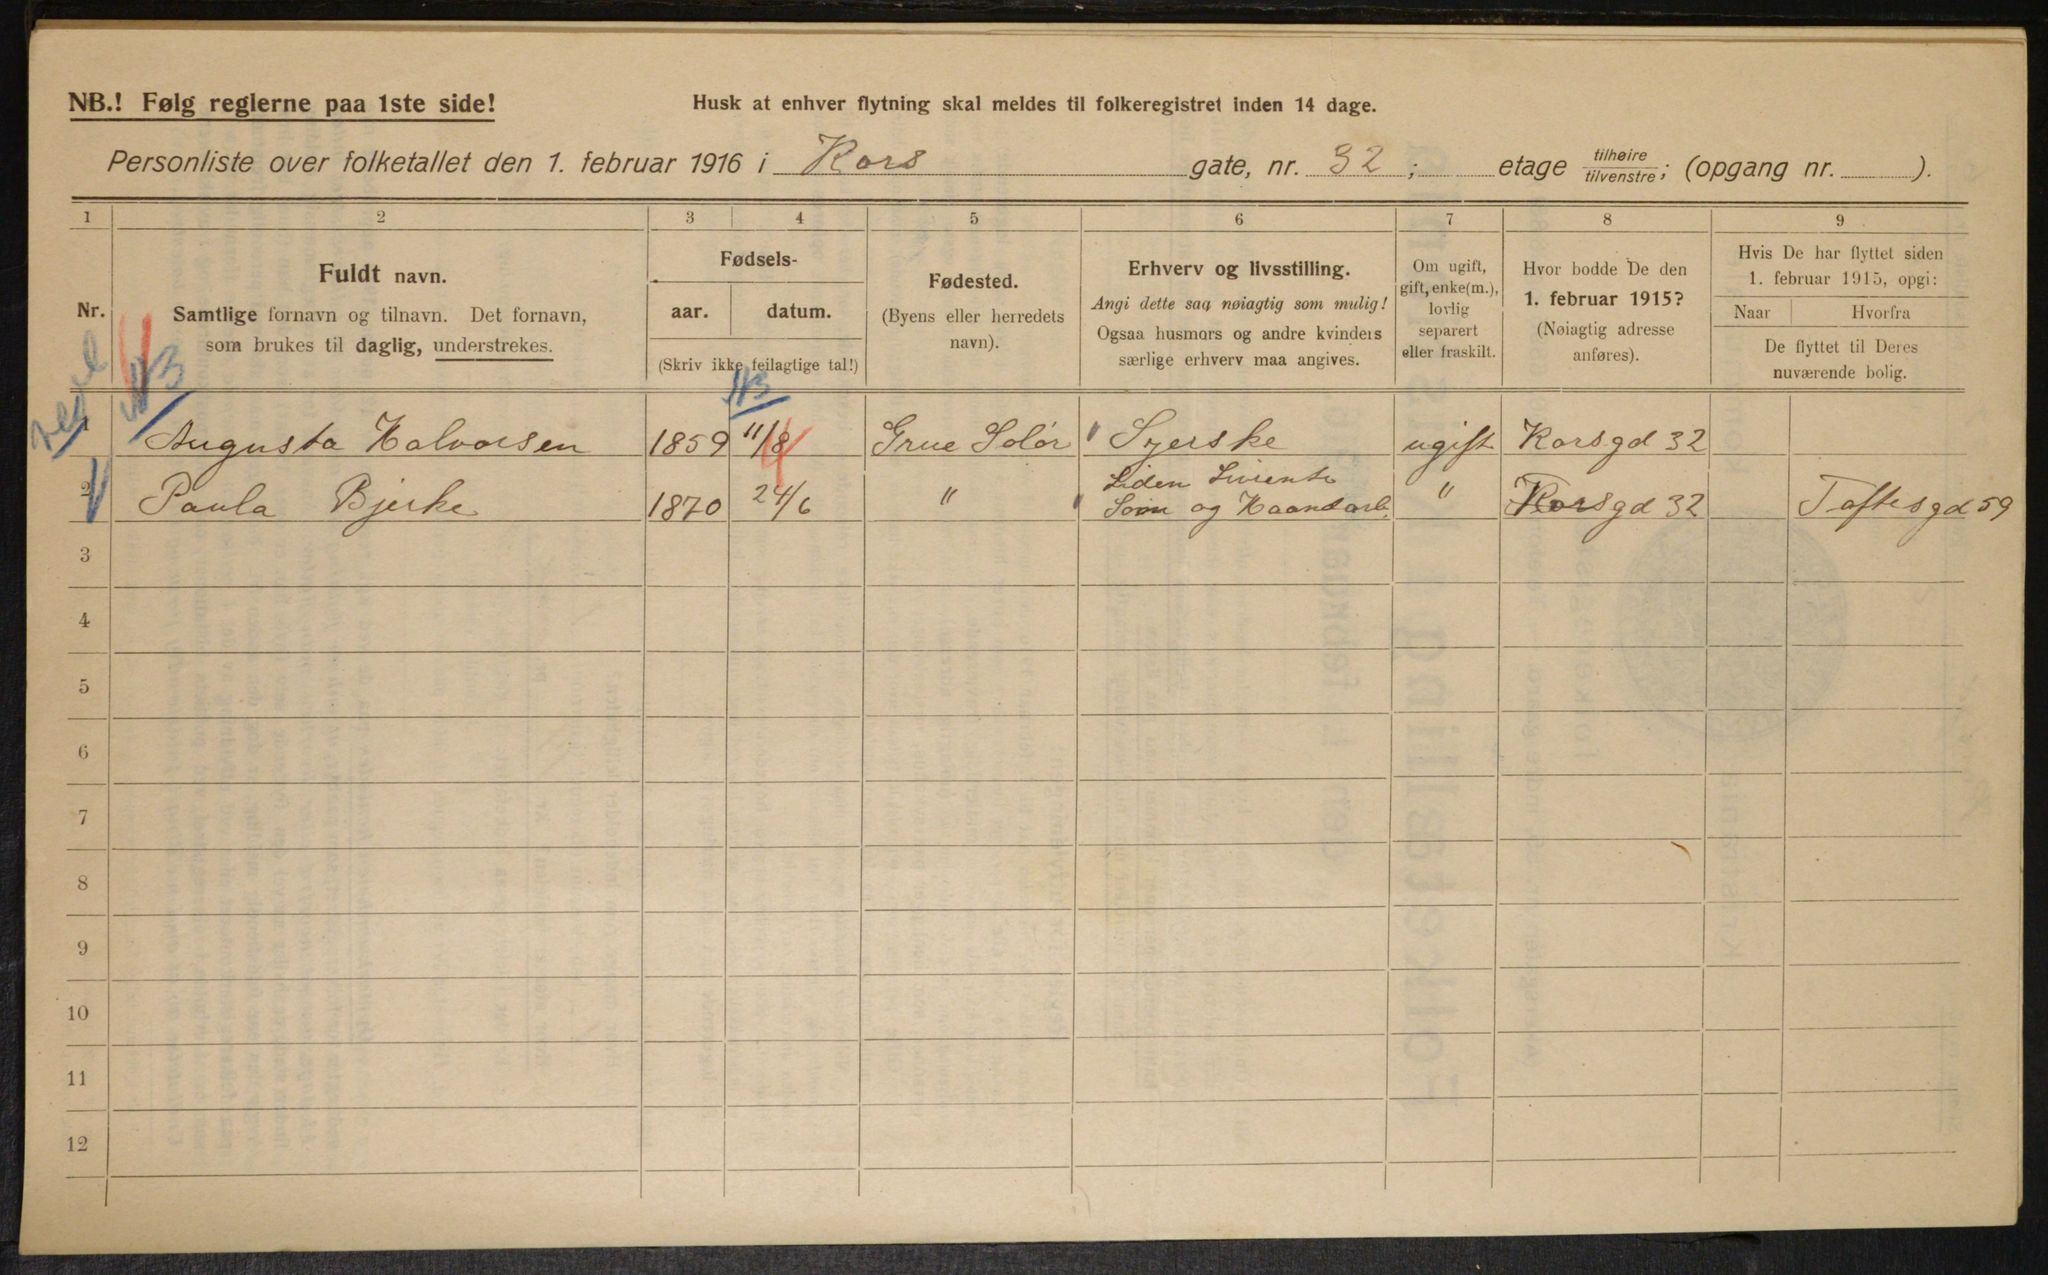 NB.! Følg reglerne paa 1ste side!
Husk at enhver flytning skal meldes til folkeregistret inden 14 dage.
Personliste over folketallet den 1. februar 1916 i Kors gate, nr. 32; etage tilhøire tilvenstre; (opgang nr. ).
1 2 3 4 5 6 7 8 9
Nr.
Fuldt navn.
Samtlige fornavn og tilnavn. Det fornavn,
som brukes til daglig, understrekes.
Fødsels-
aar. datum.
(Skriv ikke feilagtige tal!)
Fødested.
(Byens eller herredets
navn).
Erhverv og livsstilling.
Angi dette saa nøiagtig som mulig!
Ogsaa husmors og andre kvinders
særlige erhverv maa angives.
Om ugift,
gift, enke(m.),
lovlig
separert
eller fraskilt.
Hvor bodde De den
1. februar 1915?
(Nøiagtig adresse
anføres).
Hvis De har flyttet siden
1. februar 1915, opgi:
Naar Hvorfra
De flyttet til Deres
nuværende bolig.
1 Augusta Halvorsen 1859 11/8 Grue Solør Syerske ugift Korsgd 32
2 Paula Bjerke 1870 24/6 " Liden
og Haandarb. " Korsgd 32 Toftesgd 59
3
4
5
6
7
8
9
10
11
12